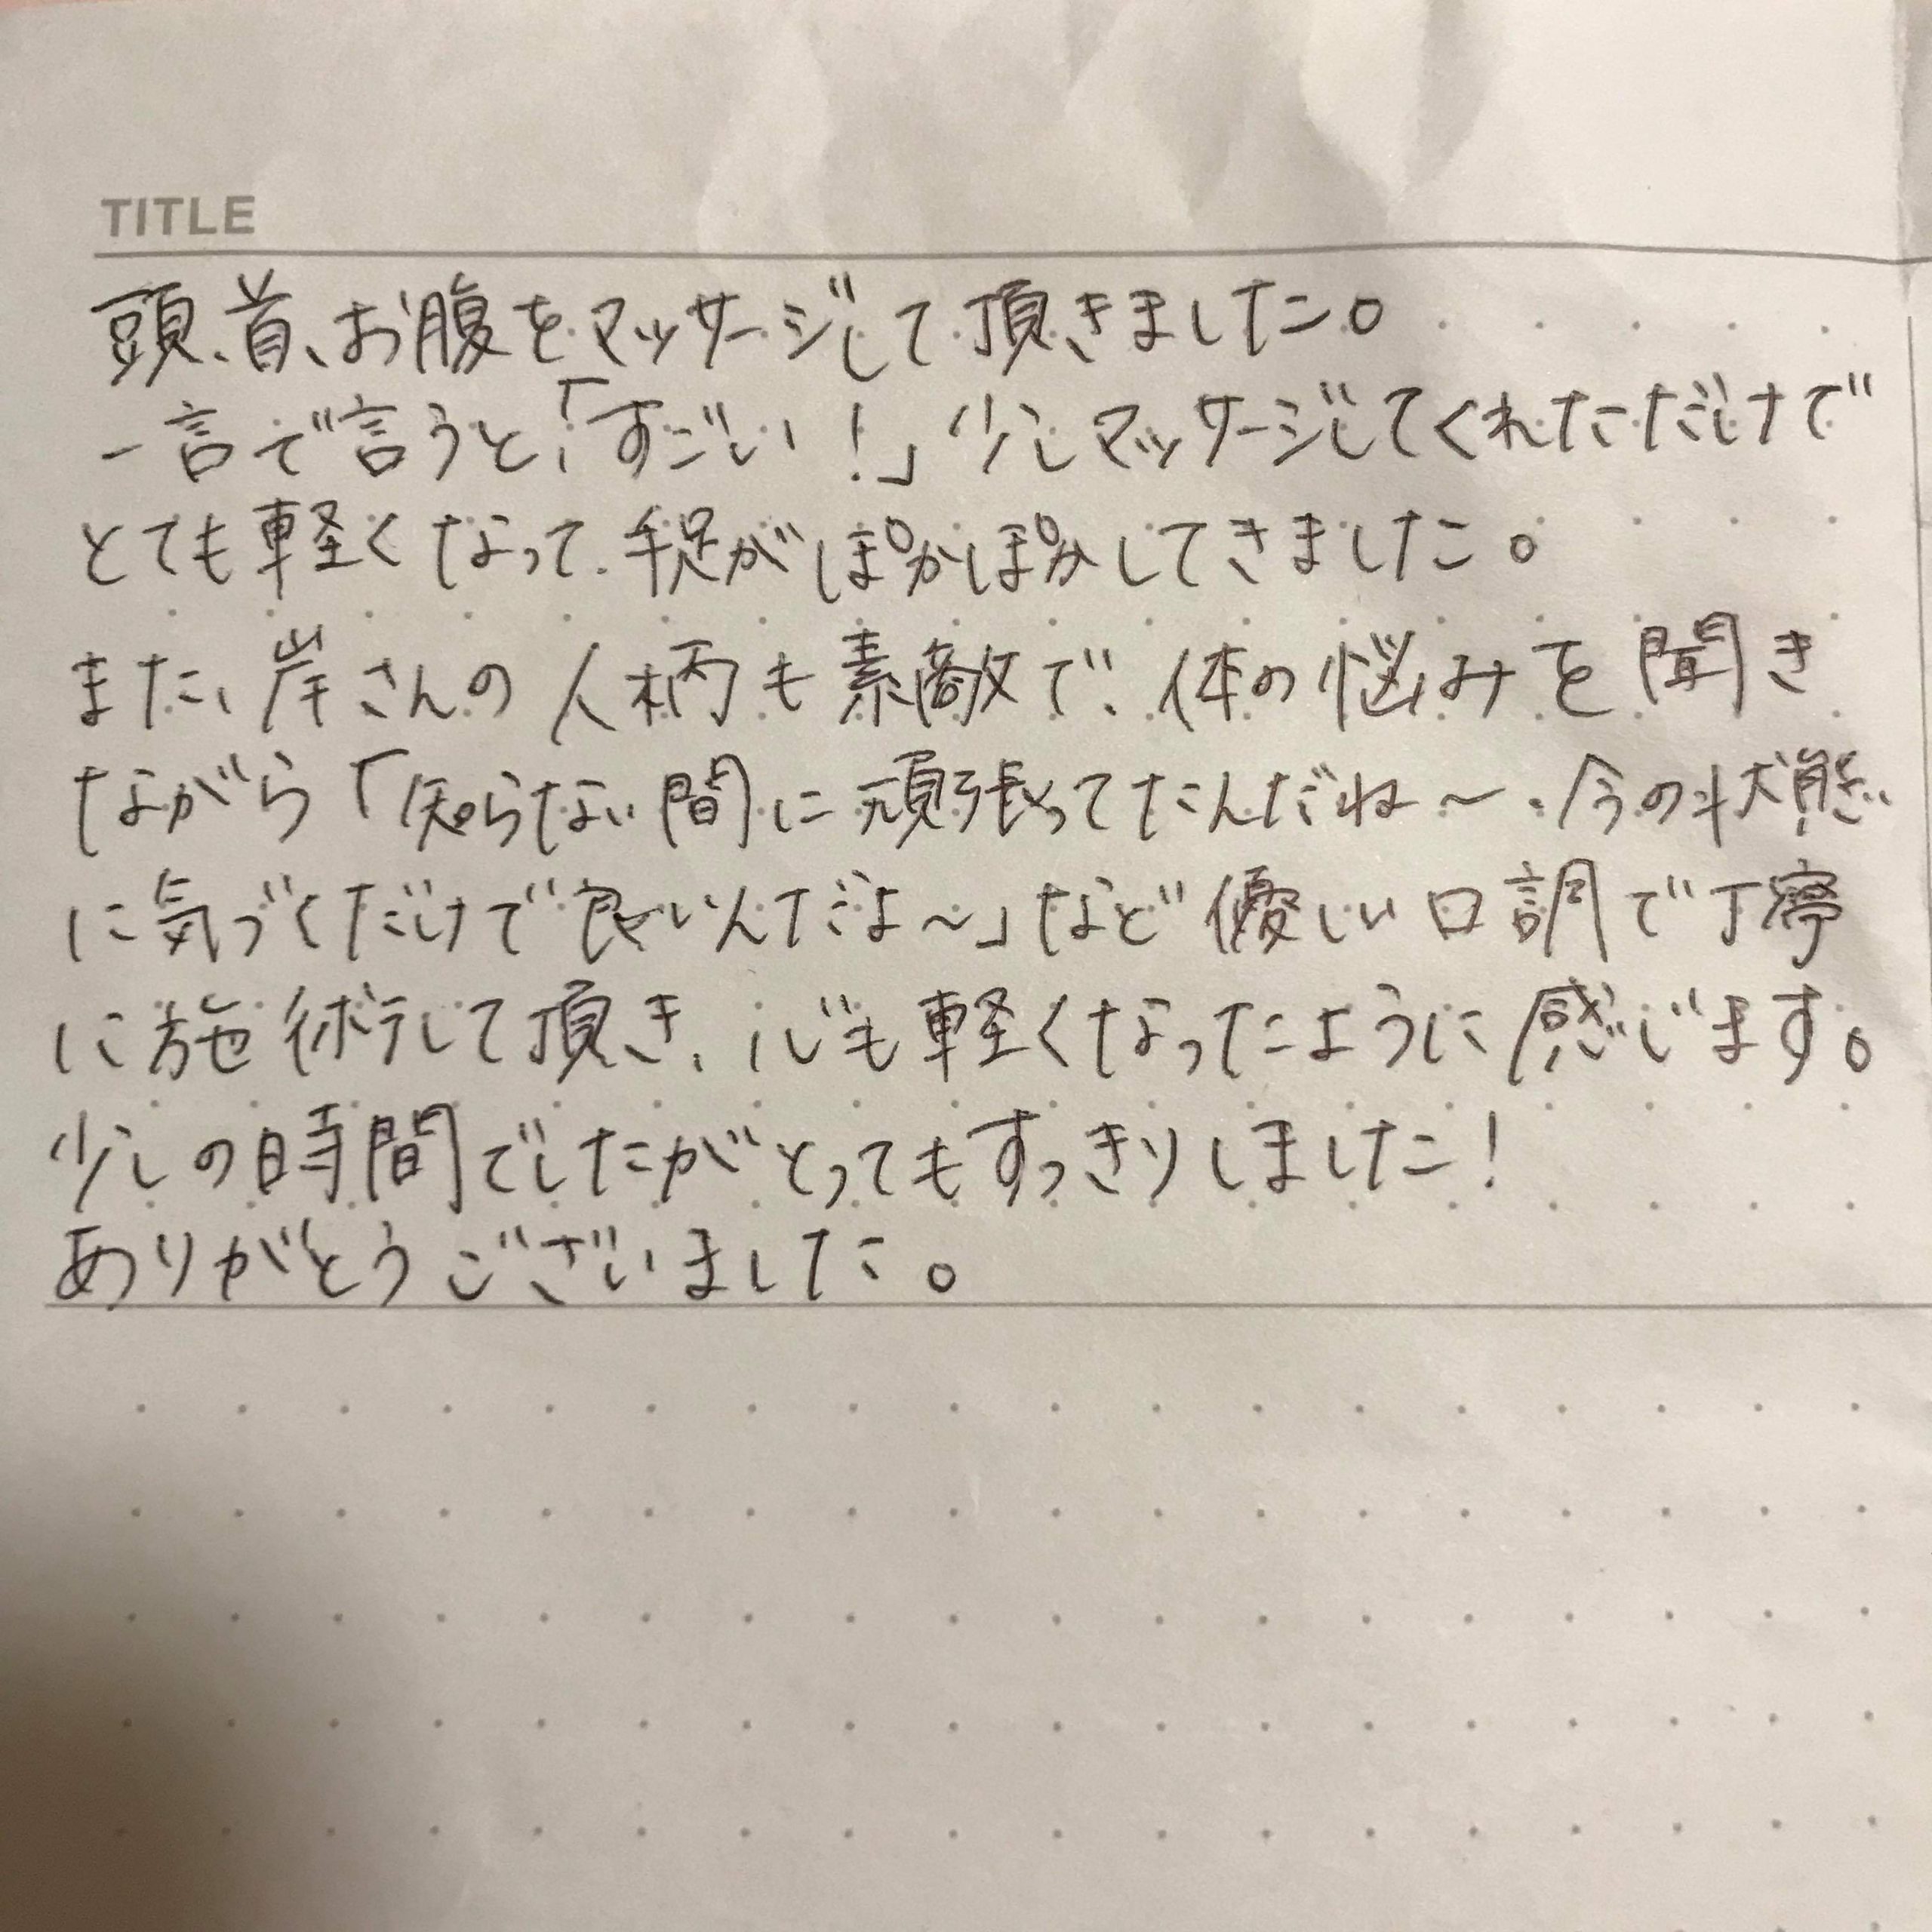 TITLE
頭、首、お腹をマッサージして頂きました。
一言で言うと、「すごい!」少しマッサージしてくれただけで
とても軽くなって、手足がぽかぽかしてきました。
また、岸さんの人柄も素敵で、体の悩みを聞き
ながら「知らない間に頑張ってたんだね〜、今の状態
に気づくだけで良いんだよ〜」など優しい口調で丁寧
に施術して頂き、心も軽くなったように感じます。
少しの時間でしたがとってもすっきりしました!
ありがとうございました。